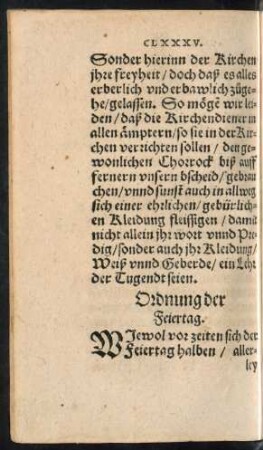 CLXXXV.
Sonder hierinn der Kirchen
jhre freyheit / doch daß es alles
erberlich vnd erbawlich züge-
he / gelassen. So mögẽ wir lei-
den / daß die Kirchendiener in
allen ämptern / so sie in der Kir-
chen verrichten sollen / den ge-
wonlichen Chorrock biß auff
fernern vnsern bscheid / gebrau
chen / vnnd sunst auch in allweg
sich einer ehrlichen / gebürlich-
en Kleidung fleissigen / damit
nicht allein jhr wort vnnd Pre-
dig / sonder auch jhr Kleidung /
Weiß vnnd Geberde / ein Lehr
der Tugendt seien.
Ordnung der
Feiertag.
WJewol vor zeiten sich der
Feiertag halben / aller-
ley